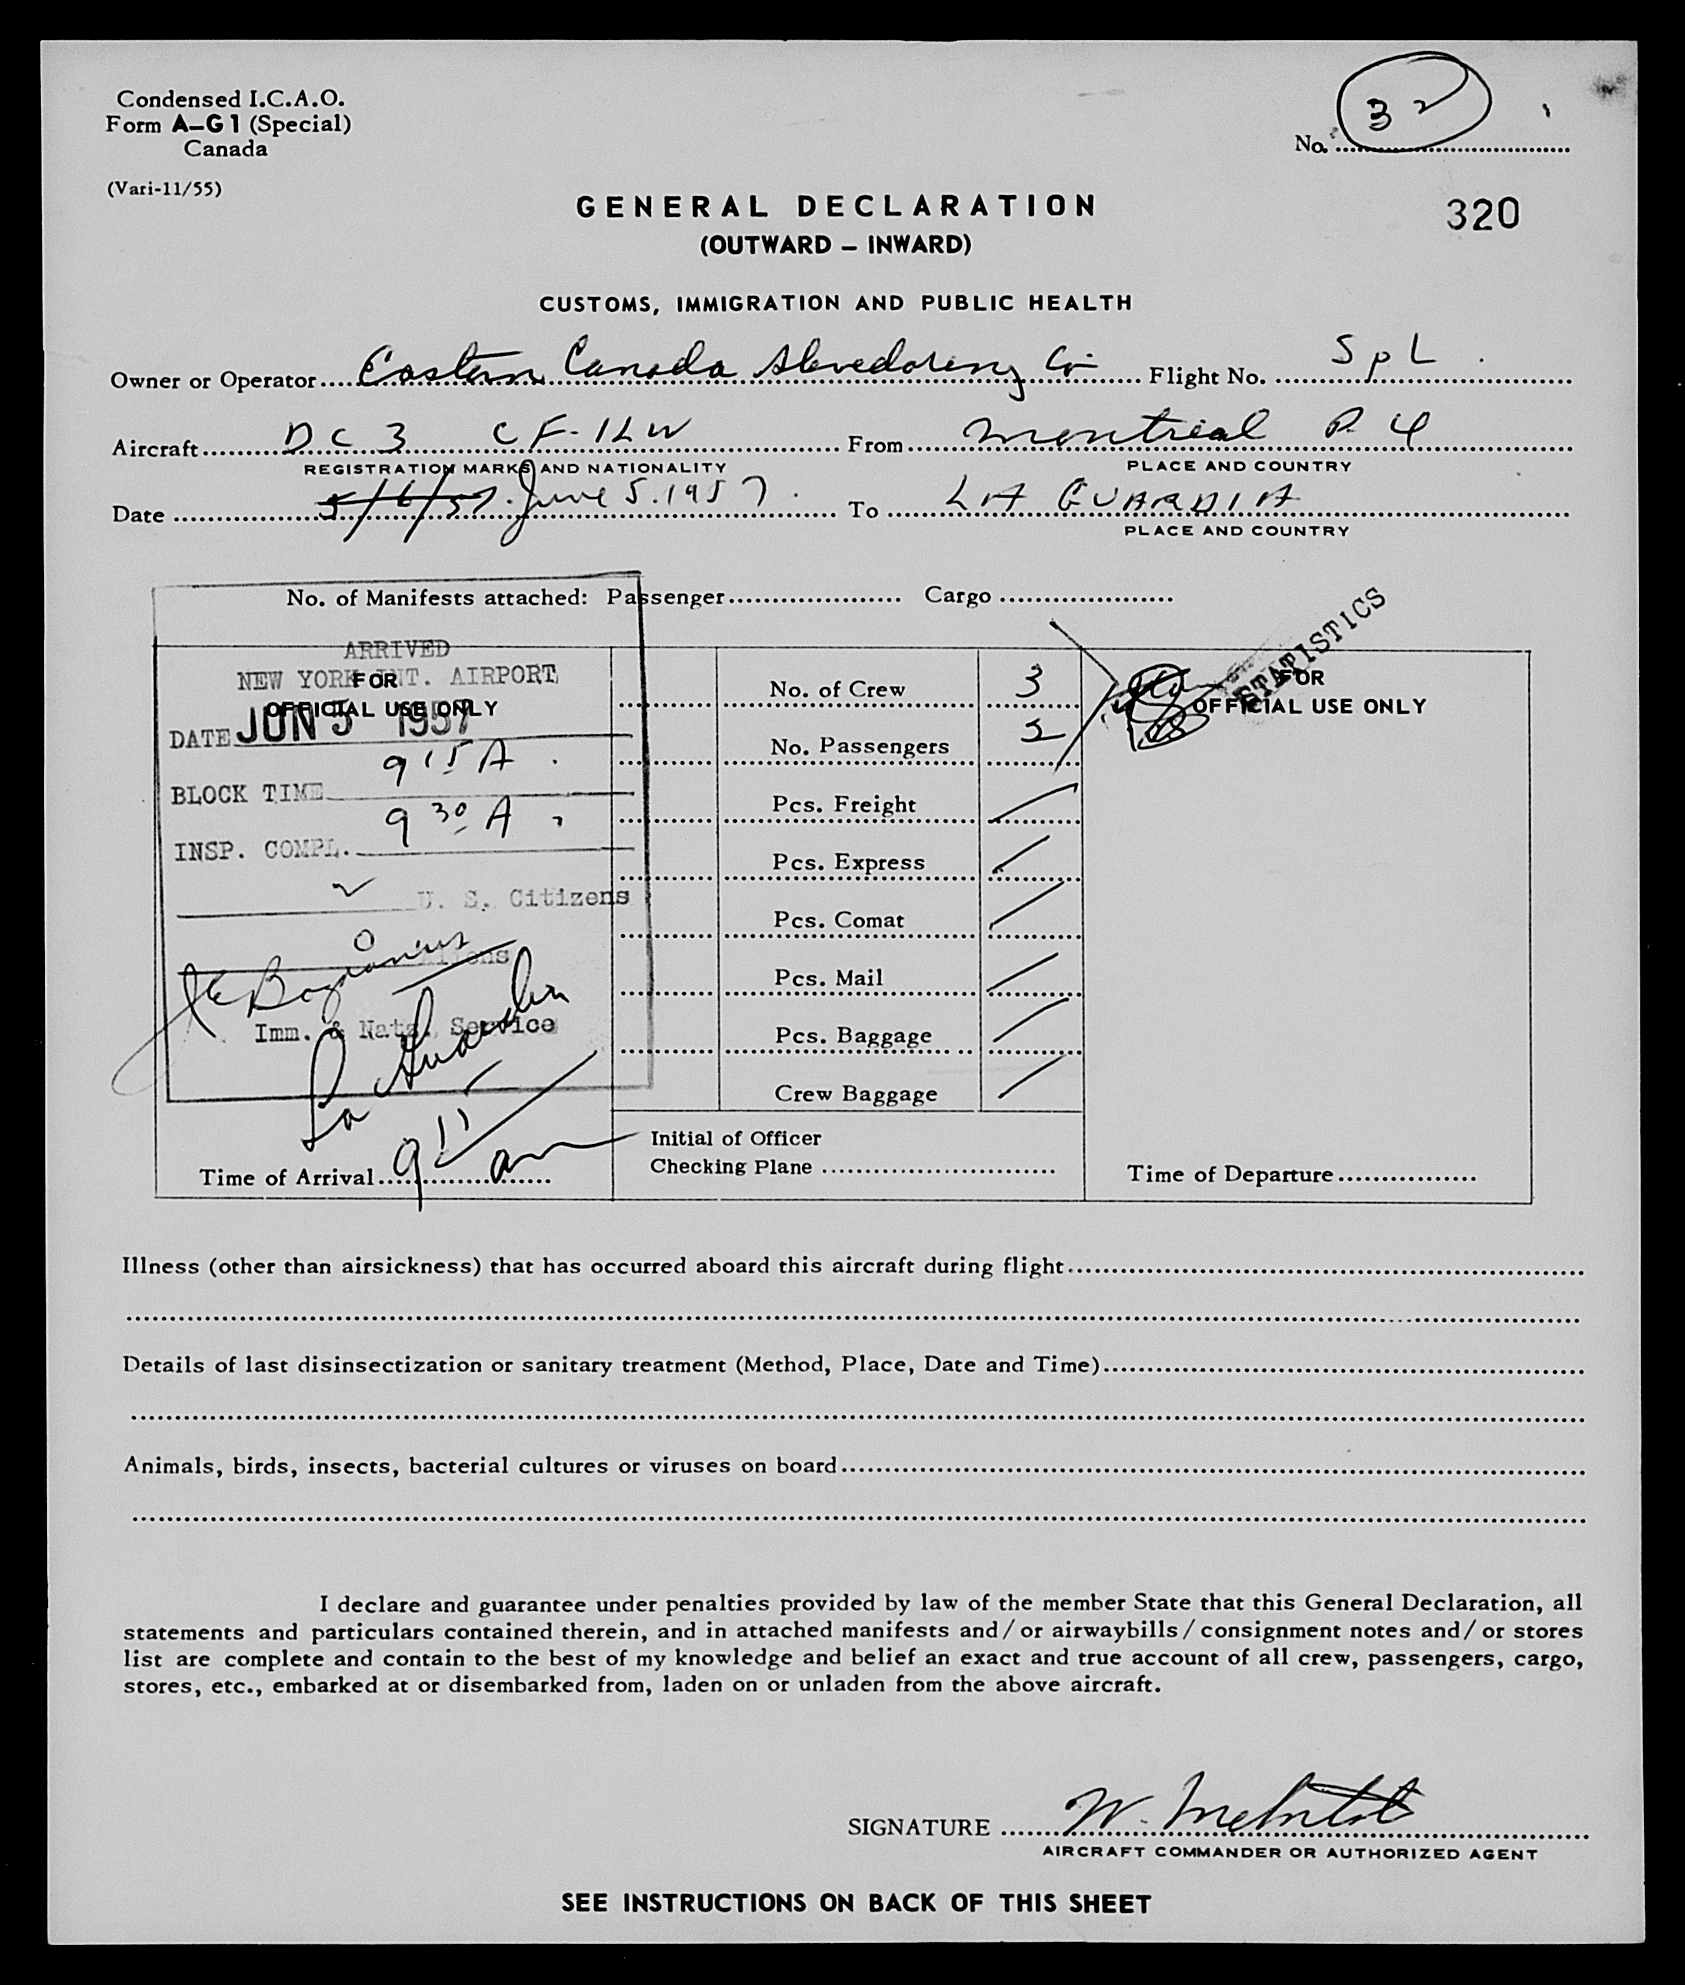 Condensed I.C.A.O.
Form A-G1 (Special)
Canada
(Vari-11/55)
No. 32
320
GENERAL DECLARATION
(OUTWARD – INWARD)
CUSTOMS, IMMIGRATION AND PUBLIC HEALTH
Owner or Operator Eastern Canada Stevedoring Co Flight No. SpL
Aircraft DC3 CF-ILW From Montreal P.Q
REGISTRATION MARKS AND NATIONALITY PLACE AND COUNTRY
Date 5/6/57. June 5. 1957 To LA GUARDIA
PLACE AND COUNTRY
No. of Manifests attached: Passenger Cargo
ARRIVED
NEW YORK INT. AIRPORT
FOR
OFFICIAL USE ONLY
DATE JUN 5 1957
BLOCK TIME 915 A
INSP. COMPL. 930 A
U. S. Citizens
Aliens
Imm. & Natz. Service
La Guardia
Time of Arrival 915 am
No. of Crew 3
No. Passengers
Pcs. Freight
Pcs. Express
Pcs. Comat
Pcs. Mail
Pcs. Baggage
Crew Baggage
Initial of Officer
Checking Plane
STATISTICS
FOR
OFFICIAL USE ONLY
Time of Departure
Illness (other than airsickness) that has occurred aboard this aircraft during flight
Details of last disinsectization or sanitary treatment (Method, Place, Date and Time)
Animals, birds, insects, bacterial cultures or viruses on board
I declare and guarantee under penalties provided by law of the member State that this General Declaration, all
statements and particulars contained therein, and in attached manifests and/or airwaybills/consignment notes and/or stores
list are complete and contain to the best of my knowledge and belief an exact and true account of all crew, passengers, cargo,
stores, etc., embarked at or disembarked from, laden on or unladen from the above aircraft.
SIGNATURE W. McIntosh
AIRCRAFT COMMANDER OR AUTHORIZED AGENT
SEE INSTRUCTIONS ON BACK OF THIS SHEET